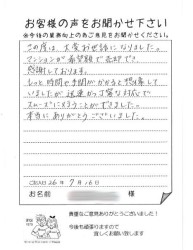 お客様の声をお聞かせ下さい
今後の業務向上の為ご意見をお聞かせください。
この度は、大変お世話になりました。
マンションが希望額で売却でき、
感謝しております。
もっと時間や手間がかかると想像して
いましたが 迅速かつ丁寧な対応で
スムーズに
本当にありがとうございました。
26年 7月16日
お名前 様
貴重なご意見ありがとうございました!
今後も頑張りますので
宜しくお願い致します